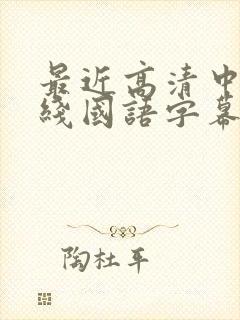 最近高清中
綫國語字幕
陶杜平